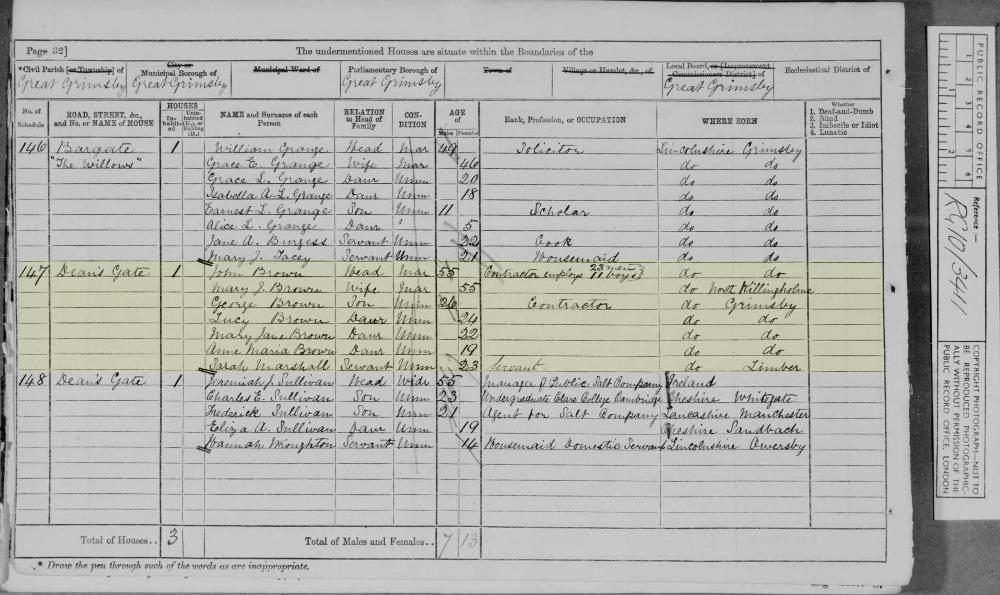 Page 32] The undermentioned Houses are situate within the Boundaries of the
*Civil Parish [or Township] of City or Municipal Borough of Municipal Ward of Parliamentary Borough of Town of Village or Hamlet, &c., of Local Board, or [Improvement Commissioners District] of Ecclesiastical District of
Great Grimsby Great Grimsby Great Grimsby Great Grimsby
No. of Schedule ROAD, STREET, &c., and No. or NAME of HOUSE HOUSES In-habit-ed Unin-habited (U.), or Building (B.) NAME and Surname of each Person RELATION to Head of Family CON-DITION AGE of Males Females Rank, Profession, or OCCUPATION WHERE BORN Whether 1. Deaf-and-Dumb 2. Blind 3. Imbecile or Idiot 4. Lunatic
146 Bargate 1 William Grange Head Mar 49 Solicitor Lincolnshire Grimsby
"The Willows" Grace E. Grange Wife Mar 46 do do
Grace L. Grange Daur Unm 20 do do
Isabella A. L. Grange Daur Unm 18 do do
Earnest L. Grange Son Unm 11 Scholar do do
Alice L. Grange Daur " 5 do do
Jane A. Burgess Servant Unm 22 Cook do do
Mary J. Tacey Servant Unm 21 Housemaid do do
147 Dean's Gate 1 John Brown Head Mar 55 Contractor employs 23 men 11 boys do do
Mary J. Brown Wife Mar 55 do North Killingholme
George Brown Son Unm 26 Contractor do Grimsby
Lucy Brown Daur Unm 24 do do
Mary Jane Brown Daur Unm 22 do do
Anne Maria Brown Daur Unm 19 do do
Sarah Marshall Servant Unm 23 Servant do Limber
148 Dean's Gate 1 Jeremiah J. Sullivan Head Widr 55 Manager of Public Salt Company Ireland
Charles E. Sullivan Son Unm 23 Undergraduate Clare College Cambridge Cheshire Whitegate
Frederick Sullivan Son Unm 21 Agent for Salt Company Lancashire Manchester
Eliza A. Sullivan Daur Unm 19 Cheshire Sandbach
Hannah Moughton Servant Unm 14 Housemaid Domestic Servant Lincolnshire Owersby
Total of Houses.. 3 Total of Males and Females.. 7 13
* Draw the pen through such of the words as are inappropriate.
PUBLIC RECORD OFFICE
1 2 3 4 5 6
Reference:-
RG10/3411
COPYRIGHT PHOTOGRAPH—NOT TO BE REPRODUCED PHOTOGRAPHICALLY WITHOUT PERMISSION OF THE PUBLIC RECORD OFFICE, LONDON